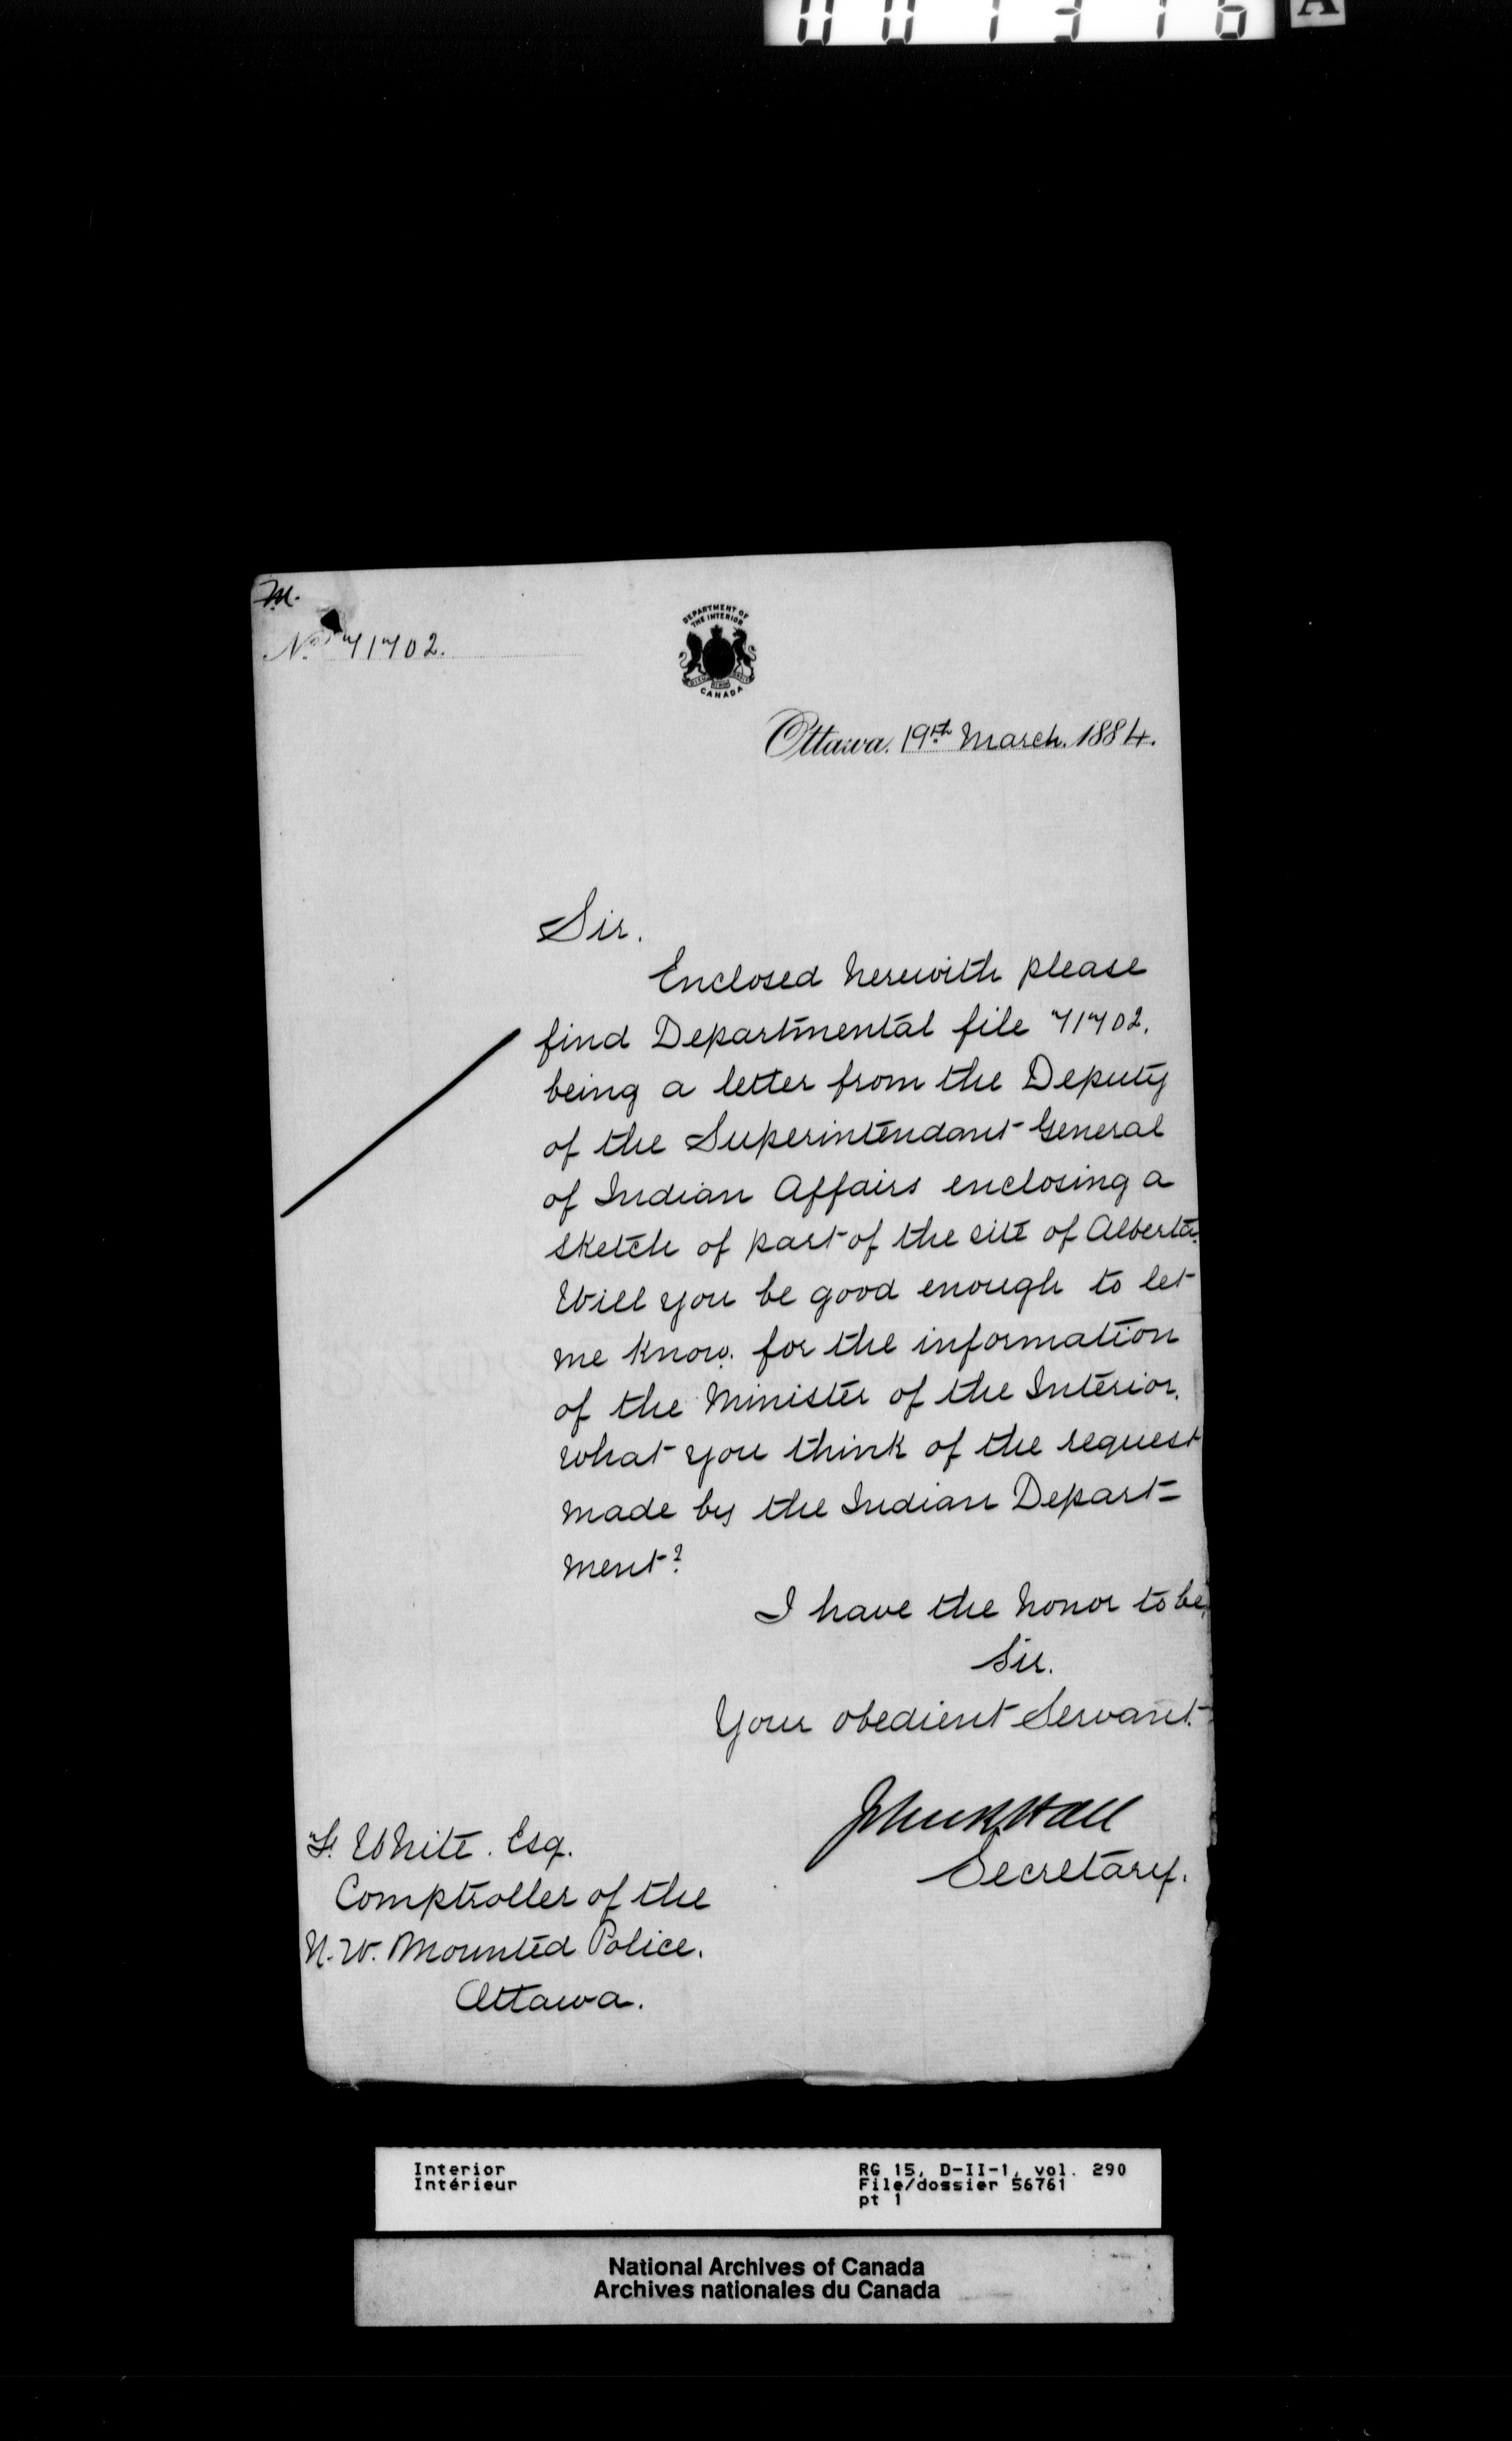 001316
A
M.
No. 71702.
DEPARTMENT OF
THE INTERIOR
CANADA
Ottawa. 19th March. 1884.
Sir.
Enclosed herewith please
find Departmental file 71702.
being a letter from the Deputy
of the Superintendant General
of Indian Affairs enclosing a
sketch of part of the site of Alberta.
Will you be good enough to let
me know. for the information
of the Minister of the Interior.
what you think of the request
made by the Indian Depart=
ment?
I have the honor to be,
Sir.
Your obedient Servant.
John R. Hall
Secretary.
F. White. Esq.
Comptroller of the
N. W. Mounted Police.
Ottawa.
Interior
Intérieur
RG 15, D-II-1, vol. 290
File/dossier 56761
pt 1
National Archives of Canada
Archives nationales du Canada